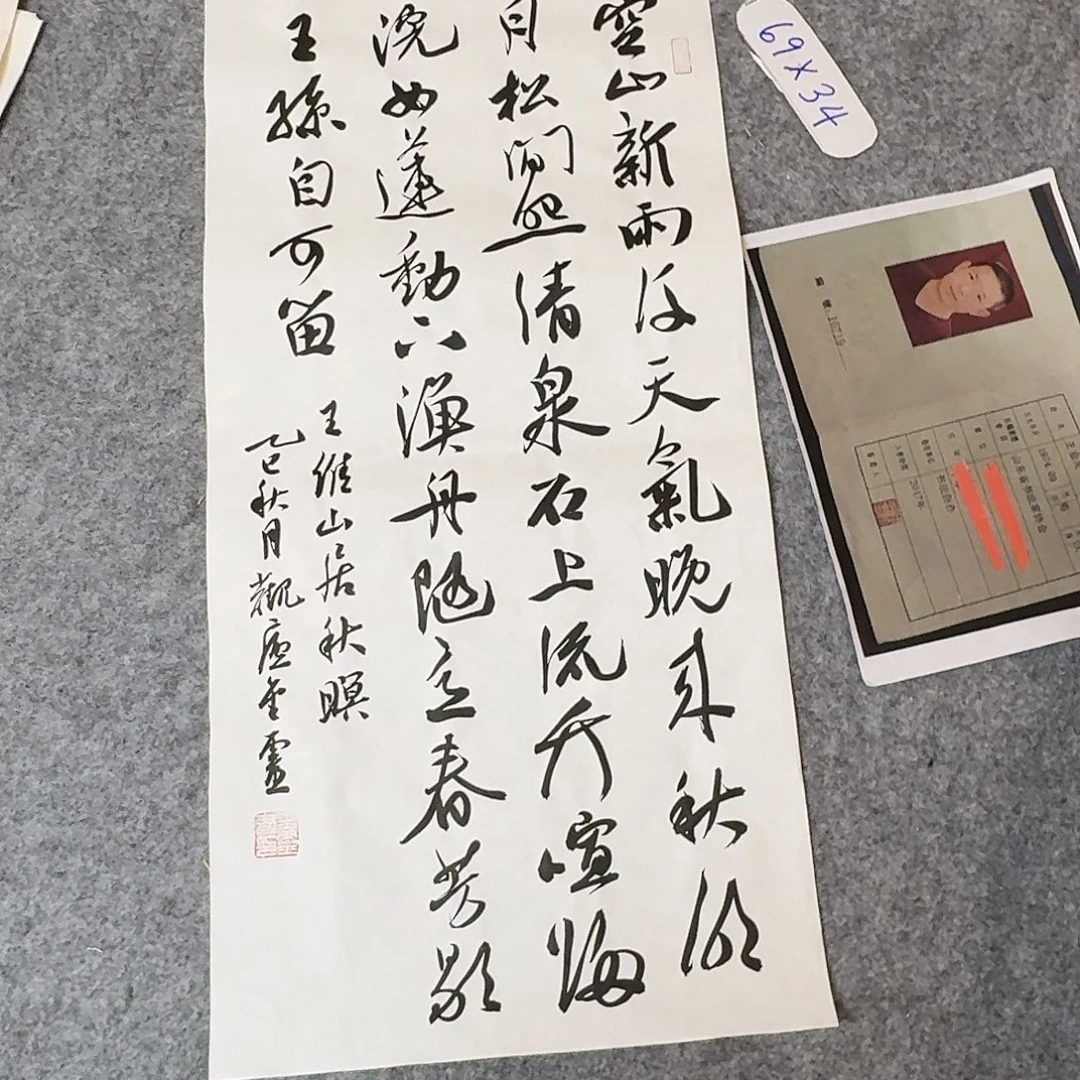 空山新雨後天氣晚来秋明
月松間照清泉石上流竹喧歸
浣女蓮動下漁舟随意春芳歇
王孫自可留
王維山居秋暝
乙巳秋月觀
69×34